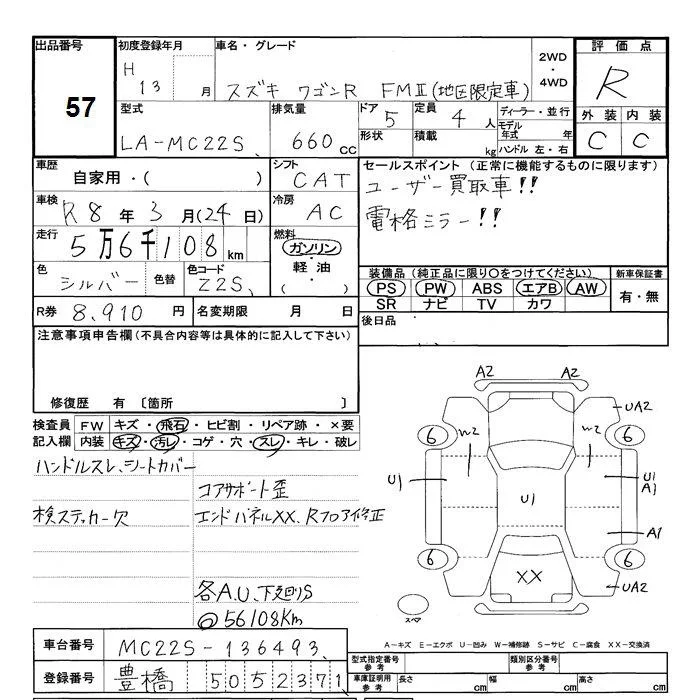 出品番号
57
初度登録年月
H 13 月
車名・グレード
スズキ ワゴンR FMⅡ(地区限定車)
2WD
・
4WD
評価点
R
外装 内装
C C
型式
LA-MC22S
排気量
660 cc
ドア 5
形状
定員 4 人
積載 kg
ディーラー・並行
モデル年式 年
ハンドル 左・右
車歴
自家用・( )
シフト
CAT
車検
R8 年 3 月(24日)
冷房
AC
走行
5万6千108 km
燃料
ガソリン
・
軽油
・
( )
色
シルバー
色替
色コード
Z2S
R券 8,910 円
名変期限 月 日
セールスポイント(正常に機能するものに限ります)
ユーザー買取車!!
電格ミラー!!
装備品(純正品に限り○をつけてください)
PS PW ABS エアB AW
SR ナビ TV カワ
新車保証書
有・無
後日品
注意事項申告欄(不具合内容等は具体的に記入して下さい)
修復歴 有 〔箇所 〕
検査員記入欄
FW キズ・飛石・ヒビ割・リペア跡・×要
内装 キズ・汚レ・コゲ・穴・スレ・キレ・破レ
ハンドルスレ、シートカバー
コアサポート歪
検ステッカー欠
エンドパネルXX、Rフロア修正
各A.U、下廻りS
@56108Km
A2 A2
UA2
6 6
W2 W2
U1
U1
U1
A1
A1
6 6
XX
UA2
スペア
A-キズ E-エクボ U-凹み W-補修跡 S-サビ C-腐食 XX-交換済
車台番号 MC22S-136493
登録番号 豊橋 50 52371
型式指定番号
参考
類別区分番号
参考
車庫証明用
参考
長さ cm
幅 cm
高さ cm